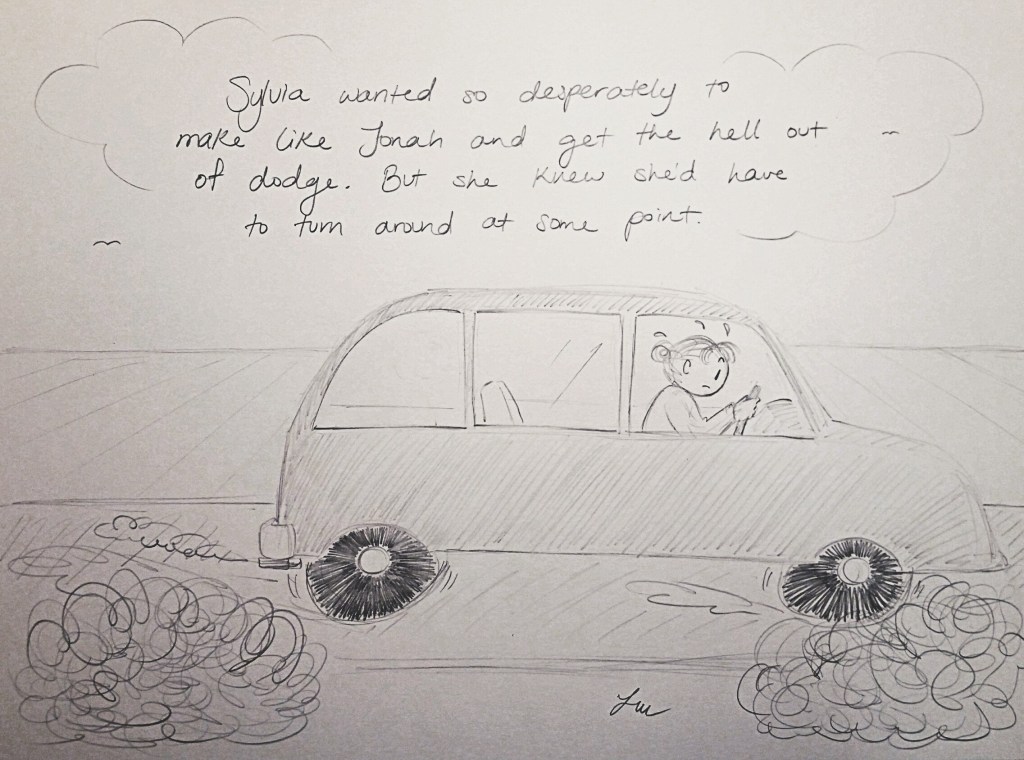 Sylvia wanted so desperately to
make like Jonah and get the hell out
of dodge. But she knew she'd have
to turn around at some point.